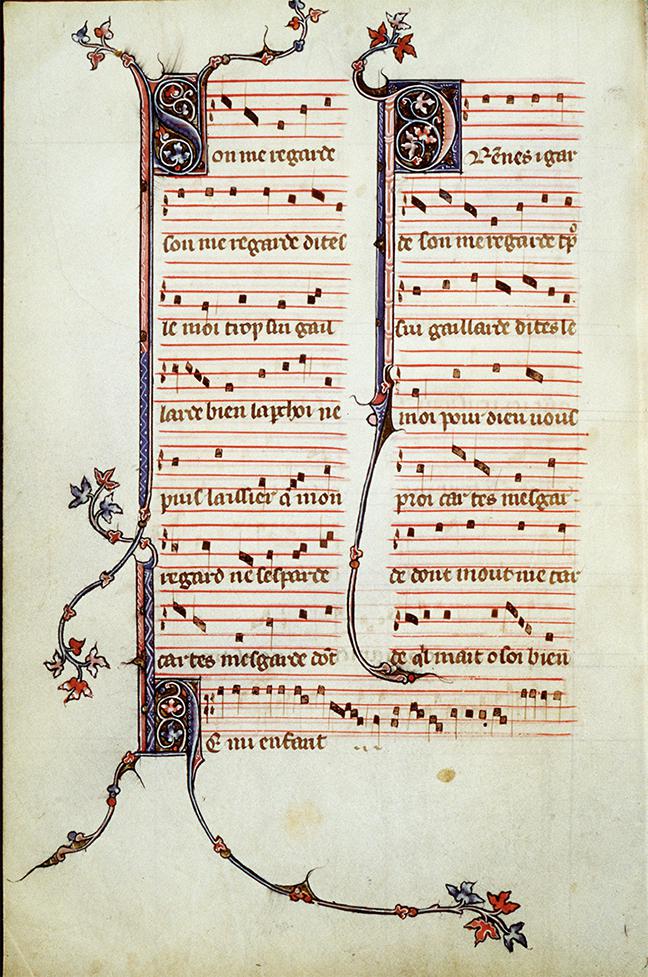 Son me regarde
son me regarde dites
le moi trop sui gail
larde bien lap̄choi ne
puis laissier q̄ mon
regard ne sesparde
car tes mesgarde dōt
PRēnes i gar
de son me regarde tp̄
sui gaillarde dites le
moi pour dieu uous
proi car tes mesgar-
de dont mout me tar
de ql mait o soi bien
HE mi enfant